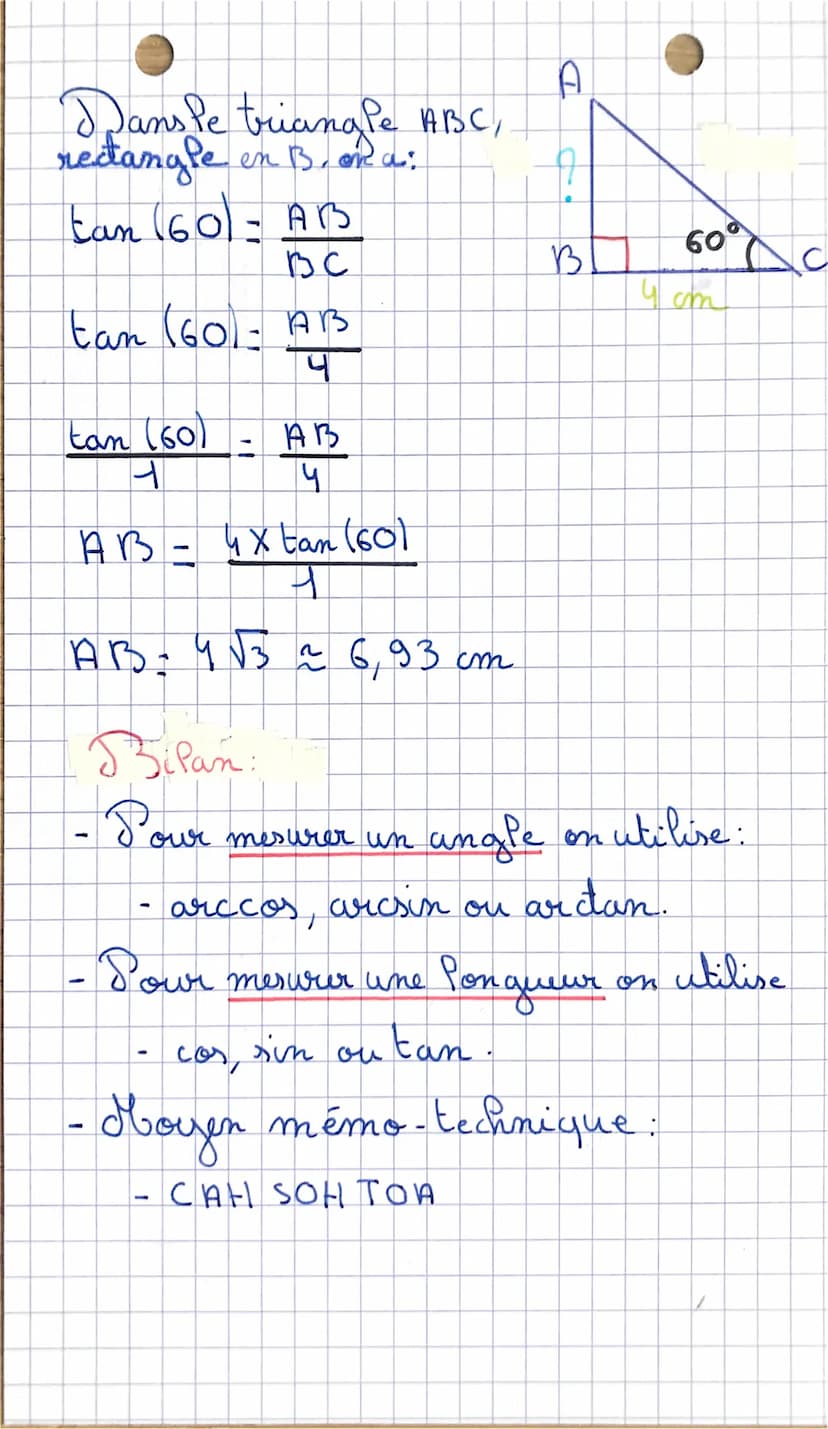 Dans le triangle ABC,
rectangle en B, on a :
tan (60) = AB / BC
tan (60) = AB / 4
tan (60) / 1 = AB / 4
AB = 4 × tan (60) / 1
AB = 4 √3 ≈ 6,93 cm
A
?
B
60°
C
4 cm
Bilan :
- Pour mesurer un angle on utilise :
- arccos, arcsin ou arctan.
- Pour mesurer une longueur on utilise
- cos, sin ou tan.
- Moyen mémo-technique :
- CAH SOH TOA